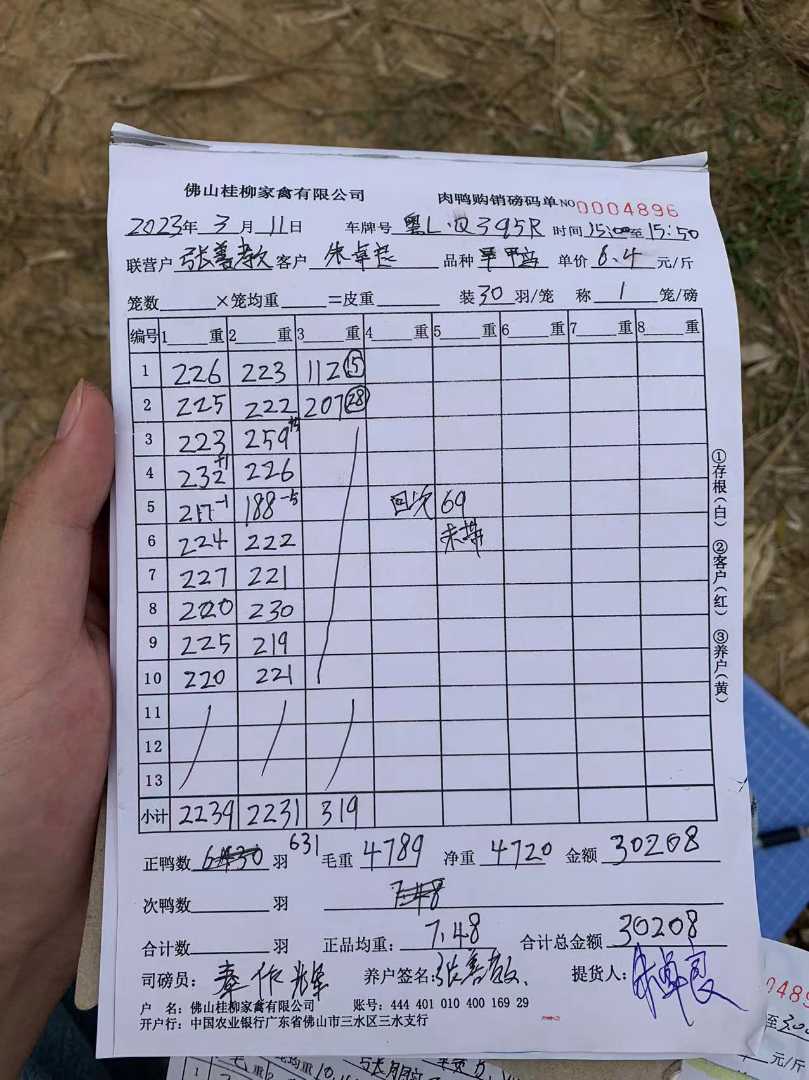 佛山桂柳家禽有限公司 肉鸭购销磅码单 NO 0004896
2023年 3 月 11 日 车牌号 粤L·Q395R 时间 15:00至15:50
联营户 张善教 客户 品种 单价 6.4 元/斤
笼数 ×笼均重 =皮重 装 30 羽/笼 称 1 笼/磅
编号 1 重 2 重 3 重 4 重 5 重 6 重 7 重 8 重
1 226 223 112 15
2 225 222 207 28
3 223 259
4 232 +1 226
5 217 -1 188 -5 69
6 224 222
7 227 221
8 220 230
9 225 219
10 220 221
11
12
13
小计 2239 2231 319
正鸭数 羽 631 毛重 4789 净重 4720 金额 30208
次鸭数 羽
合计数 羽 正品均重: 7.48 合计总金额 30208
司磅员: 养户签名: 张善教 提货人:
户 名: 佛山桂柳家禽有限公司 账号: 444 401 010 400 169 29
开户行: 中国农业银行广东省佛山市三水区三水支行
①存根(白) ②客户(红) ③养户(黄)